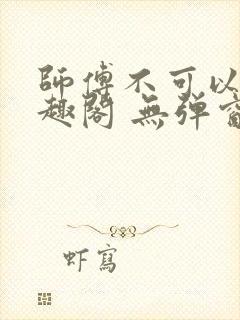 師傅不可以
趣閣 無弹窗
虾寫